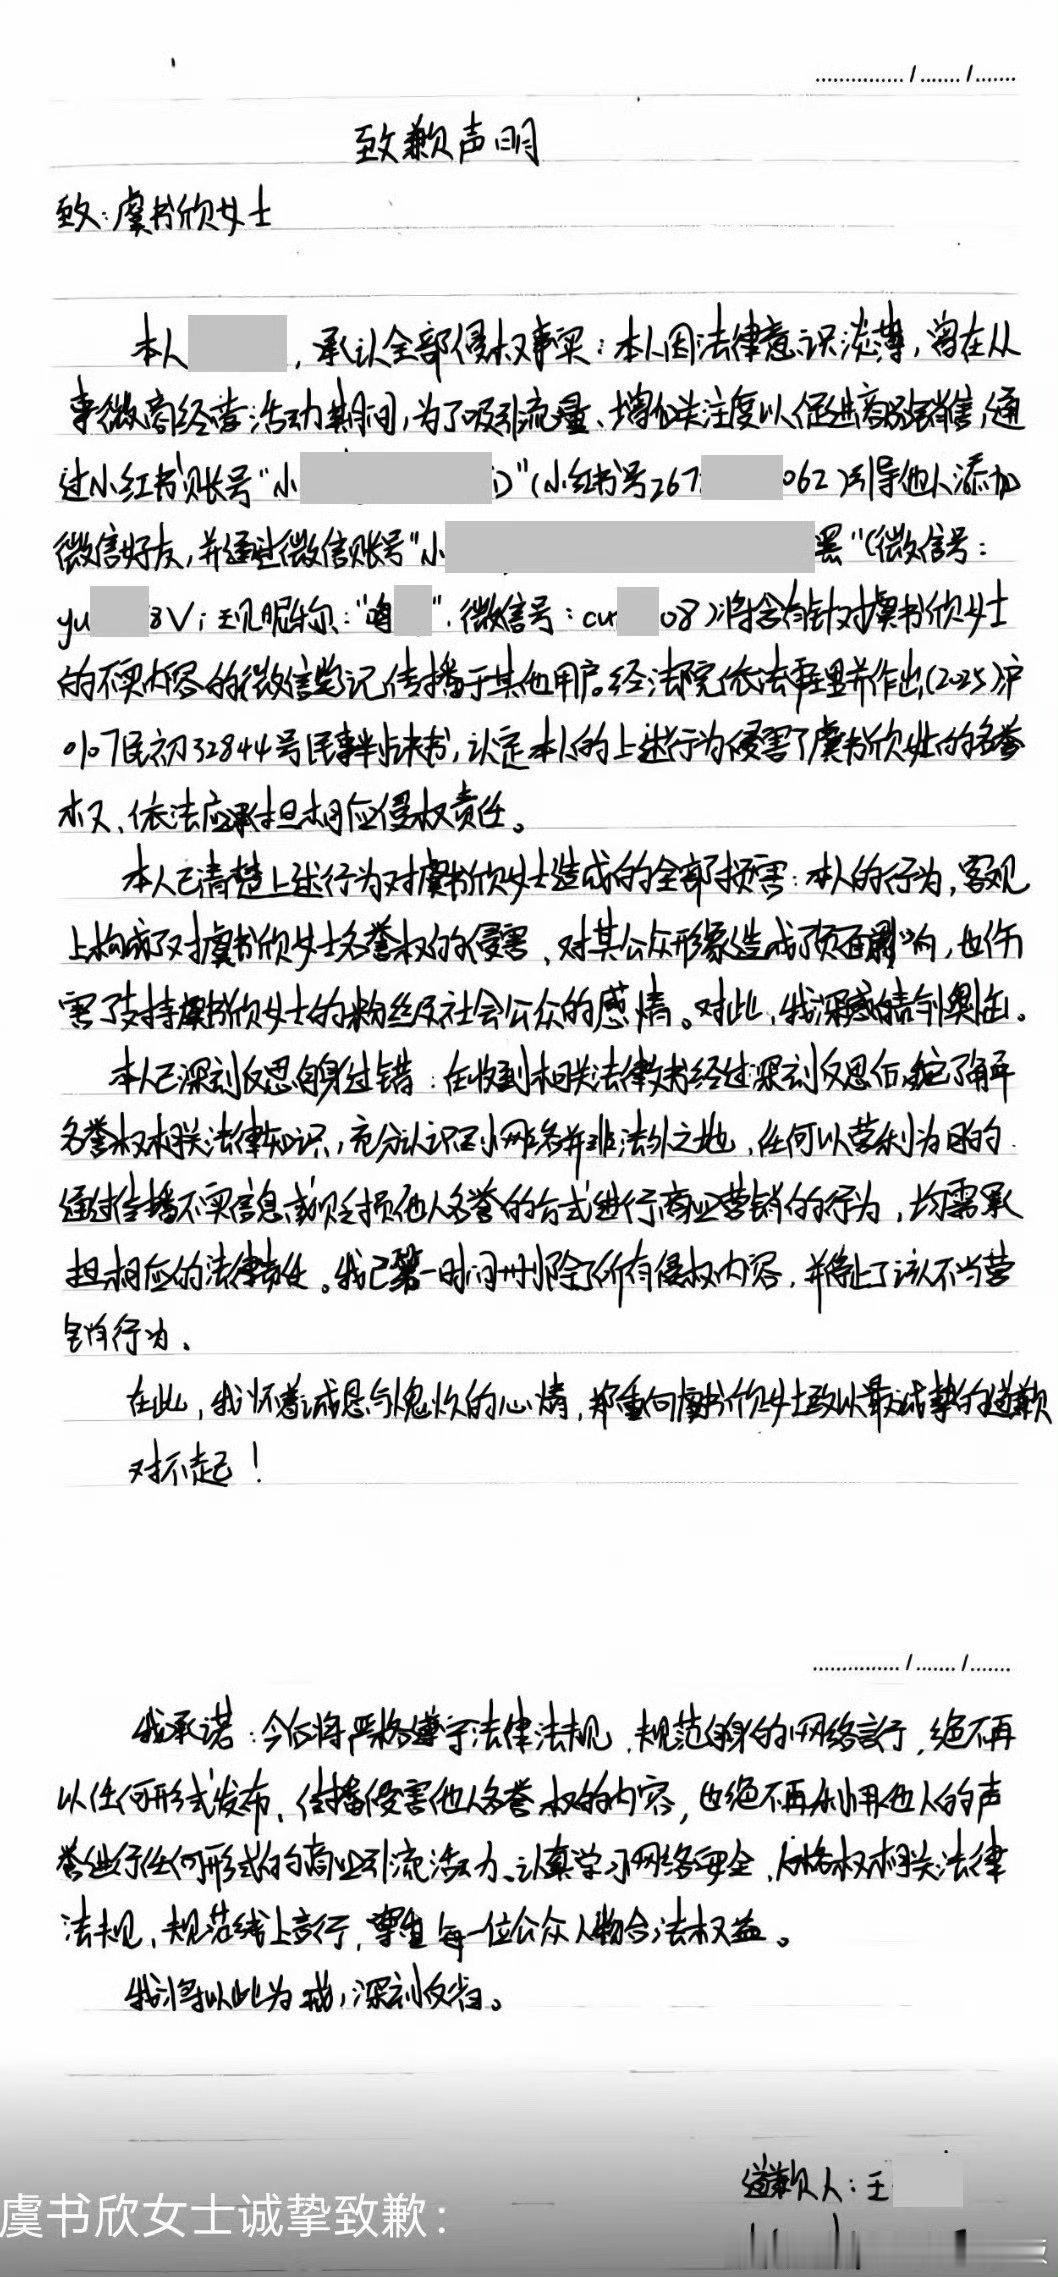 致歉声明
致：虞书欣女士
本人 ，承认全部侵权事实：本人因法律意识淡薄，曾在从
事微商经营活动期间，为了吸引流量、增加关注度以促进商品销售，通
过小红书账号"小 i)"（小红书号267 062）引导他人添加
微信好友，并通过微信账号"小 罴"（微信号：
yu 8Vi 现昵称："咱 "，微信号：cu 08）将含有针对虞书欣女士
的不实内容的微信笔记传播于其他用户。经法院依法审理并作出（2025）沪
0107民初32844号民事判决书，认定本人的上述行为侵害了虞书欣女士的名誉
权，依法应承担相应侵权责任。
本人已清楚上述行为对虞书欣女士造成的全部损害：本人的行为，客观
上构成了对虞书欣女士名誉权的侵害，对其公众形象造成了负面影响，也伤
害了支持虞书欣女士的粉丝及社会公众的感情。对此，我深感愧疚与懊悔。
本人已深刻反思自身过错：在收到相关法律文书经过深刻反思后，我已了解
名誉权相关法律知识，充分认识到网络并非法外之地，任何以营利为目的
通过传播不实信息或贬损他人名誉的方式进行商业营销的行为，均需承
担相应的法律责任。我已第一时间删除了所有侵权内容，并停止了该不当营
销行为。
在此，我怀着诚恳与愧疚的心情，郑重向虞书欣女士致以最诚挚的道歉
对不起！
我承诺：今后将严格遵守法律法规，规范自身的网络言行，绝不再
以任何形式发布、传播侵害他人名誉权的内容，也绝不再利用他人的声
誉进行任何形式的商业引流活动。认真学习网络安全、人格权相关法律
法规，规范线上言行，尊重每一位公众人物合法权益。
我将以此为戒，深刻反省。
道歉人：王
虞书欣女士诚挚致歉：